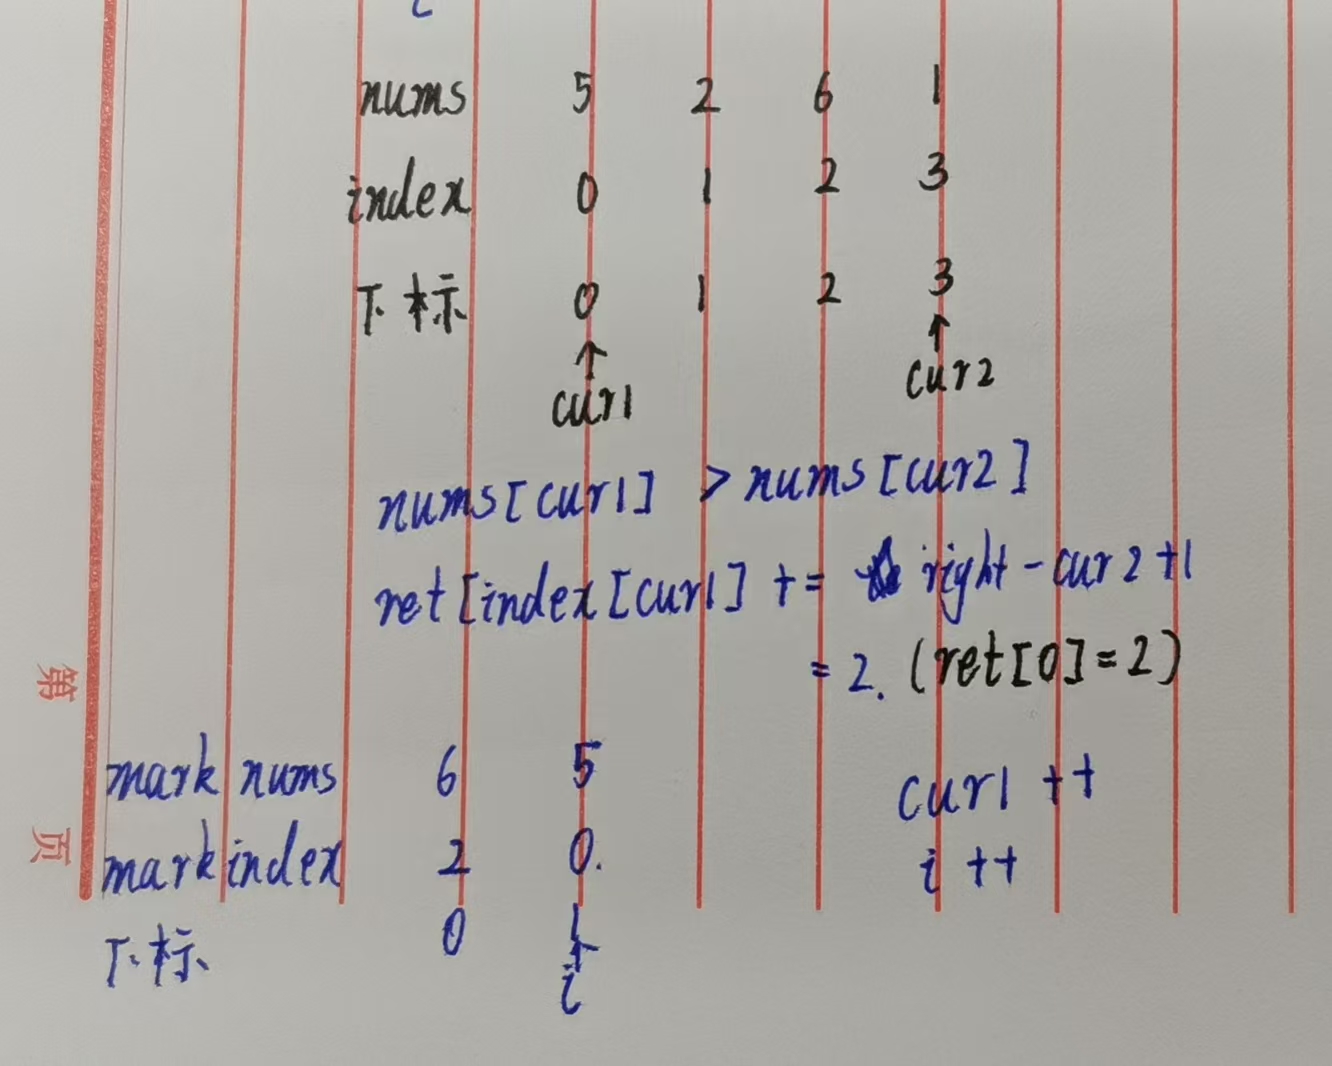 nums 5 2 6 1
index 0 1 2 3
下标 0 1 2 3
↑ ↑
cur1 cur2
nums[cur1] > nums[cur2]
ret[index[cur1] += right-cur2+1
= 2. (ret[0]=2)
第
页
mark nums 6 5 cur1 ++
mark index 2 0. i ++
下标 0 1
↑
i